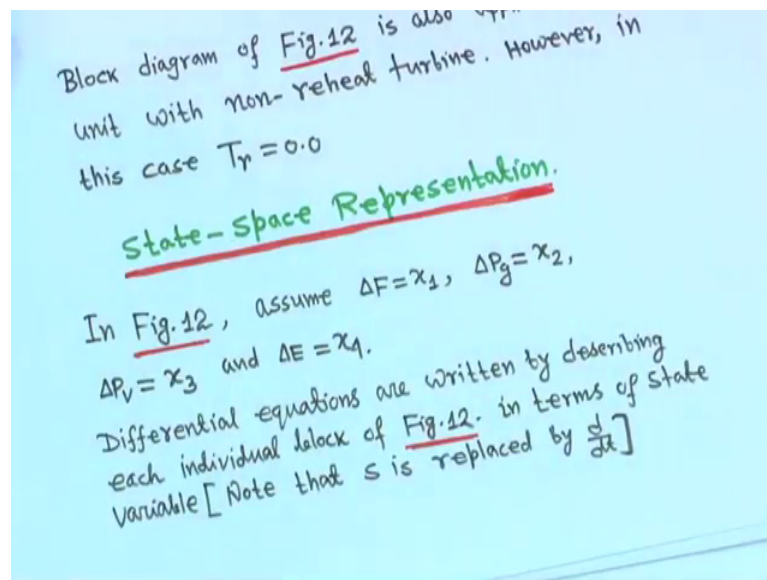 Block diagram of Fig.12 is also
unit with non-reheat turbine. However, in
this case Tr = 0.0
State-Space Representation.
In Fig.12, assume ΔF = x1, ΔPg = x2,
ΔPv = x3 and ΔE = x4.
Differential equations are written by describing
each individual block of Fig.12. in terms of state
variable [Note that s is replaced by d/dt]